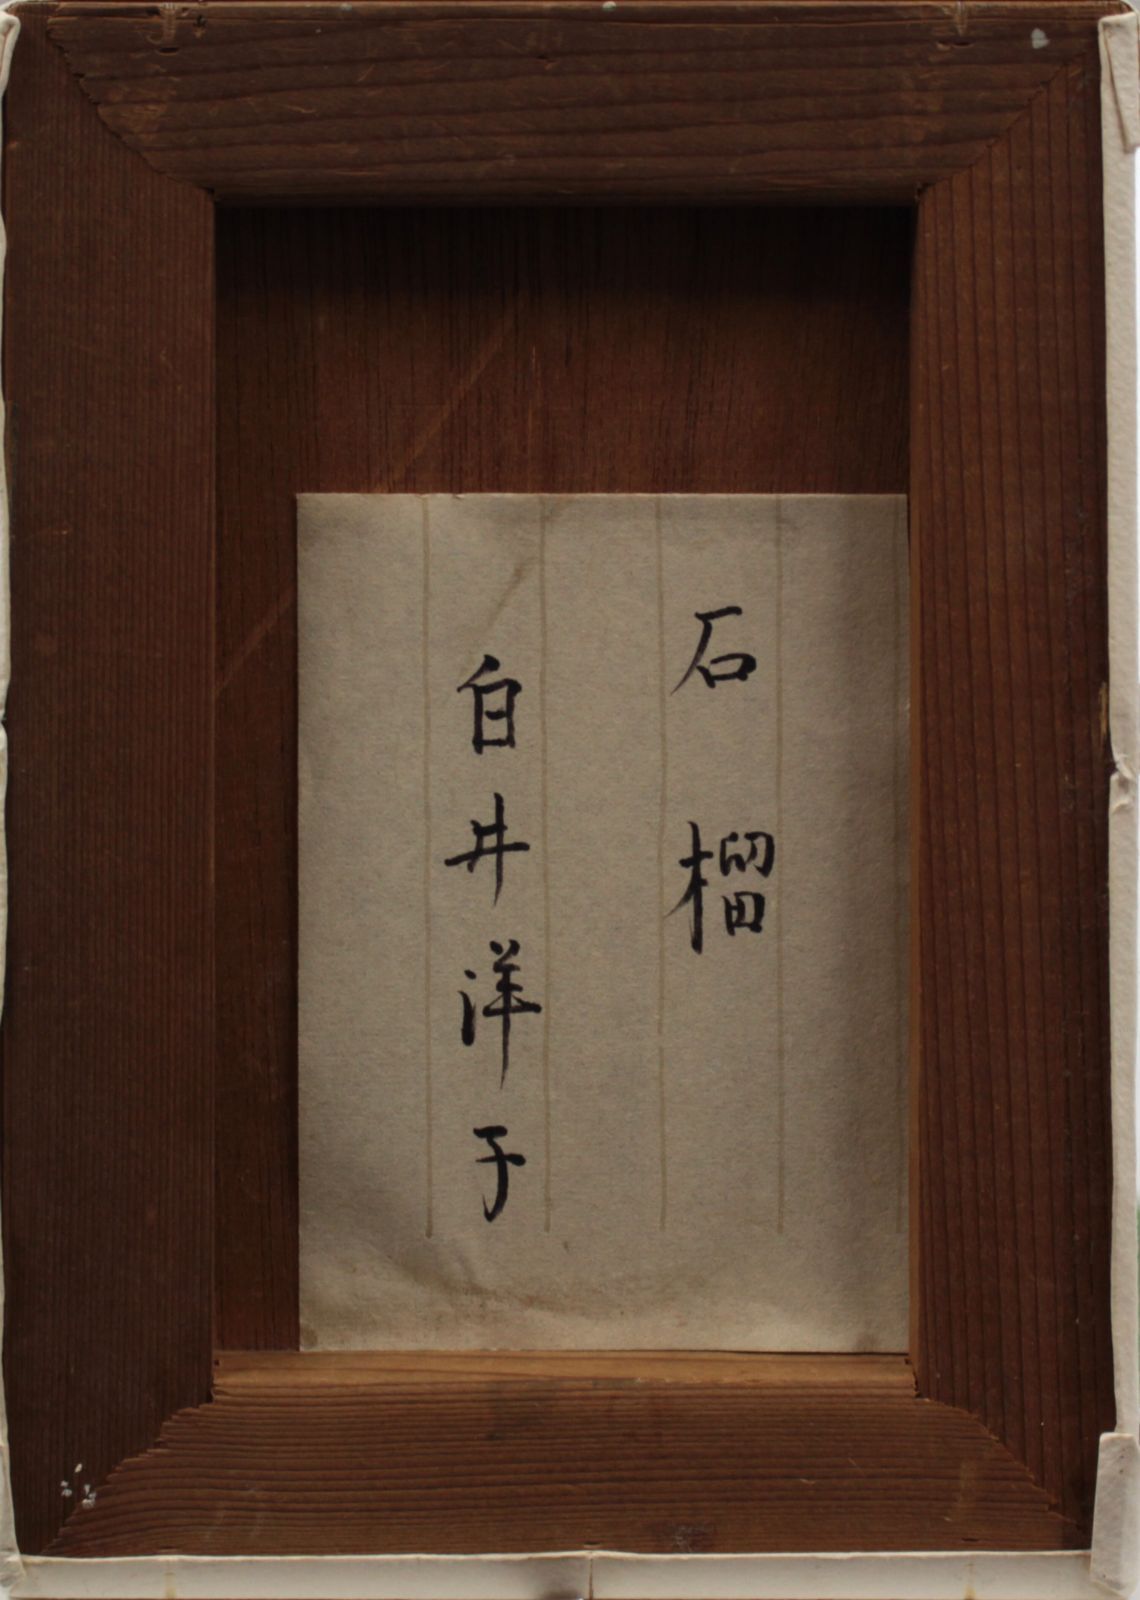 石榴
白井洋子